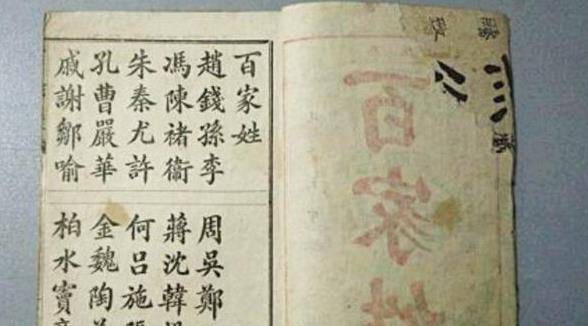 百家姓
百家姓
趙錢孫李
馮陳褚衛
朱秦尤許
孔曹嚴華
戚謝鄒喻
周吳鄭
蔣沈韓
何呂施
金魏陶
柏水竇